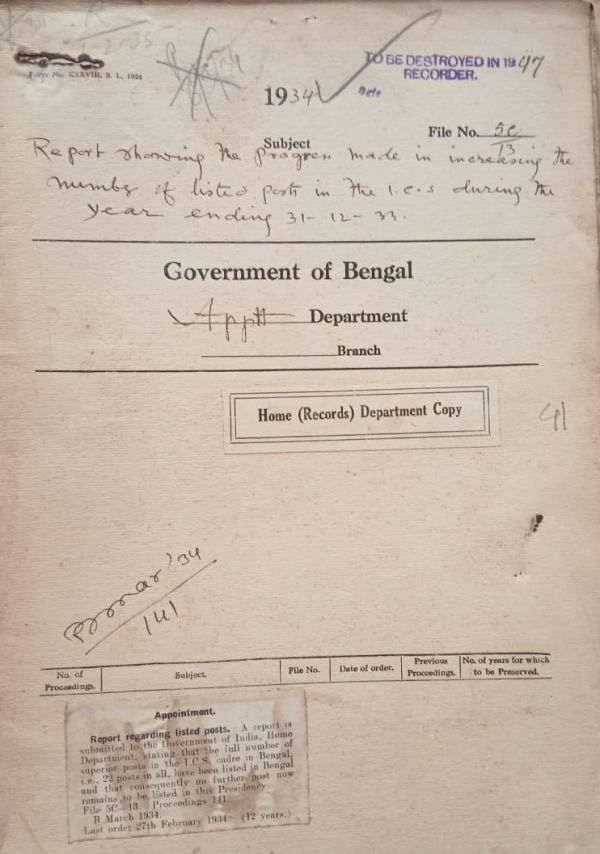 Form No. XXXVIII, S. L, 1924
TO BE DESTROYED IN 1947
RECORDER.
Date
1934
File No. 5C/13
Subject
Report showing the progress made in increasing the
number of listed posts in the I.C.S during the
year ending 31-12-33.
Government of Bengal
Apptt Department
Branch
Home (Records) Department Copy
41
Mar '34
141
No. of Proceedings. Subject. File No. Date of order. Previous Proceedings. No. of years for which to be Preserved.
Appointment.
Report regarding listed posts. A report is
submitted to the Government of India, Home
Department, stating that the full number of
superior posts in the I.C.S. cadre in Bengal,
i.e., 22 posts in all, have been listed in Bengal
and that consequently no further post now
remains to be listed in this Presidency.
File 5C—13. Proceedings 141.
B March 1934.
Last order 27th February 1934 (12 years.)